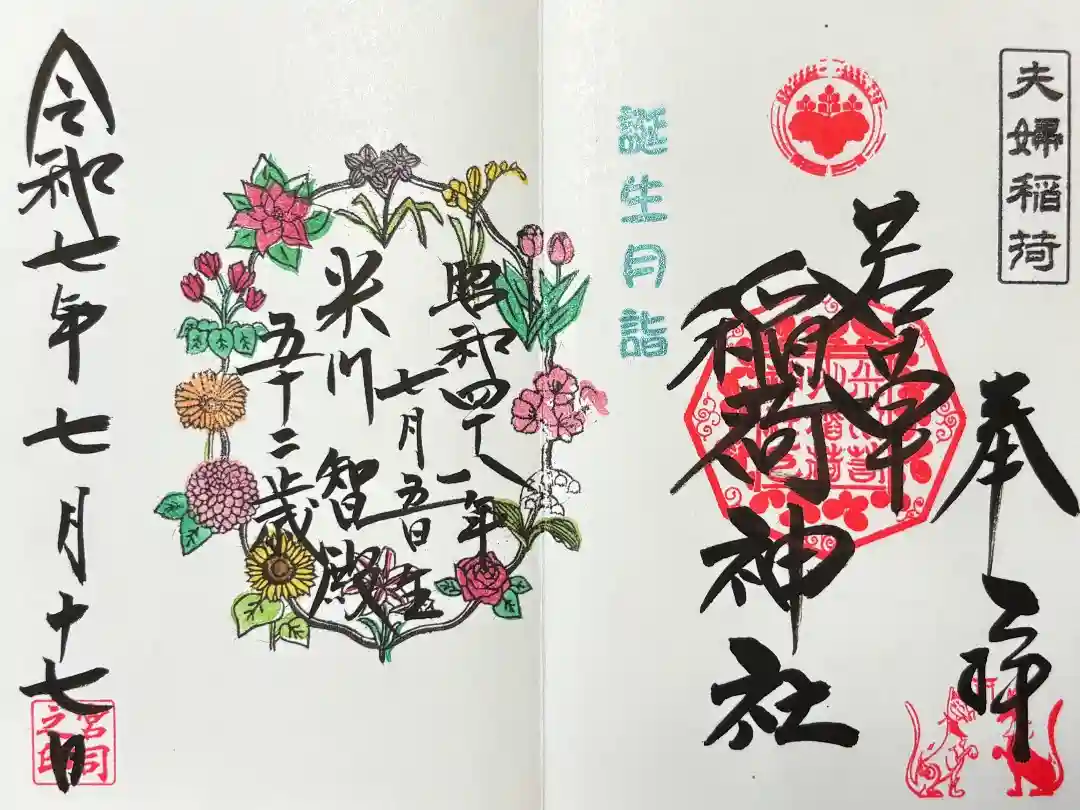 夫婦稲荷
奉拝
若宮
稲荷神社
誕生月詣
昭和四十八年
七月五日生
米川智殿
五十二歳
令和七年七月十七日
宮司之印